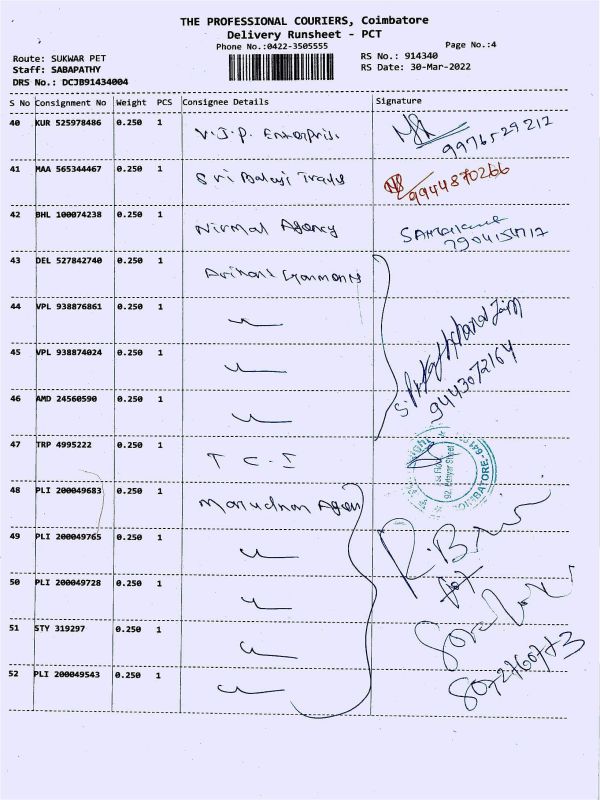 THE PROFESSIONAL COURIERS, Coimbatore
Delivery Runsheet - PCT
Phone No.:0422-3505555
Page No.:4
Route: SUKWAR PET
RS No.: 914340
Staff: SABAPATHY
RS Date: 30-Mar-2022
DRS No.: DCJB91434004
S No Consignment No Weight PCS Consignee Details Signature
40 KUR 525978486 0.250 1 V.J.P. Enterprise.
9976529212
41 MAA 565344467 0.250 1 Sri Balaji Trades
9944870266
42 BHL 100074238 0.250 1 Nirmal Agency
43 DEL 527842740 0.250 1 Arihant Garments
44 VPL 938876861 0.250 1
45 VPL 938874024 0.250 1
9443072164
46 AMD 24560590 0.250 1
47 TRP 4995222 0.250 1 T C I
48 PLI 200049683 0.250 1
49 PLI 200049765 0.250 1
50 PLI 200049728 0.250 1
51 STY 319297 0.250 1
52 PLI 200049543 0.250 1